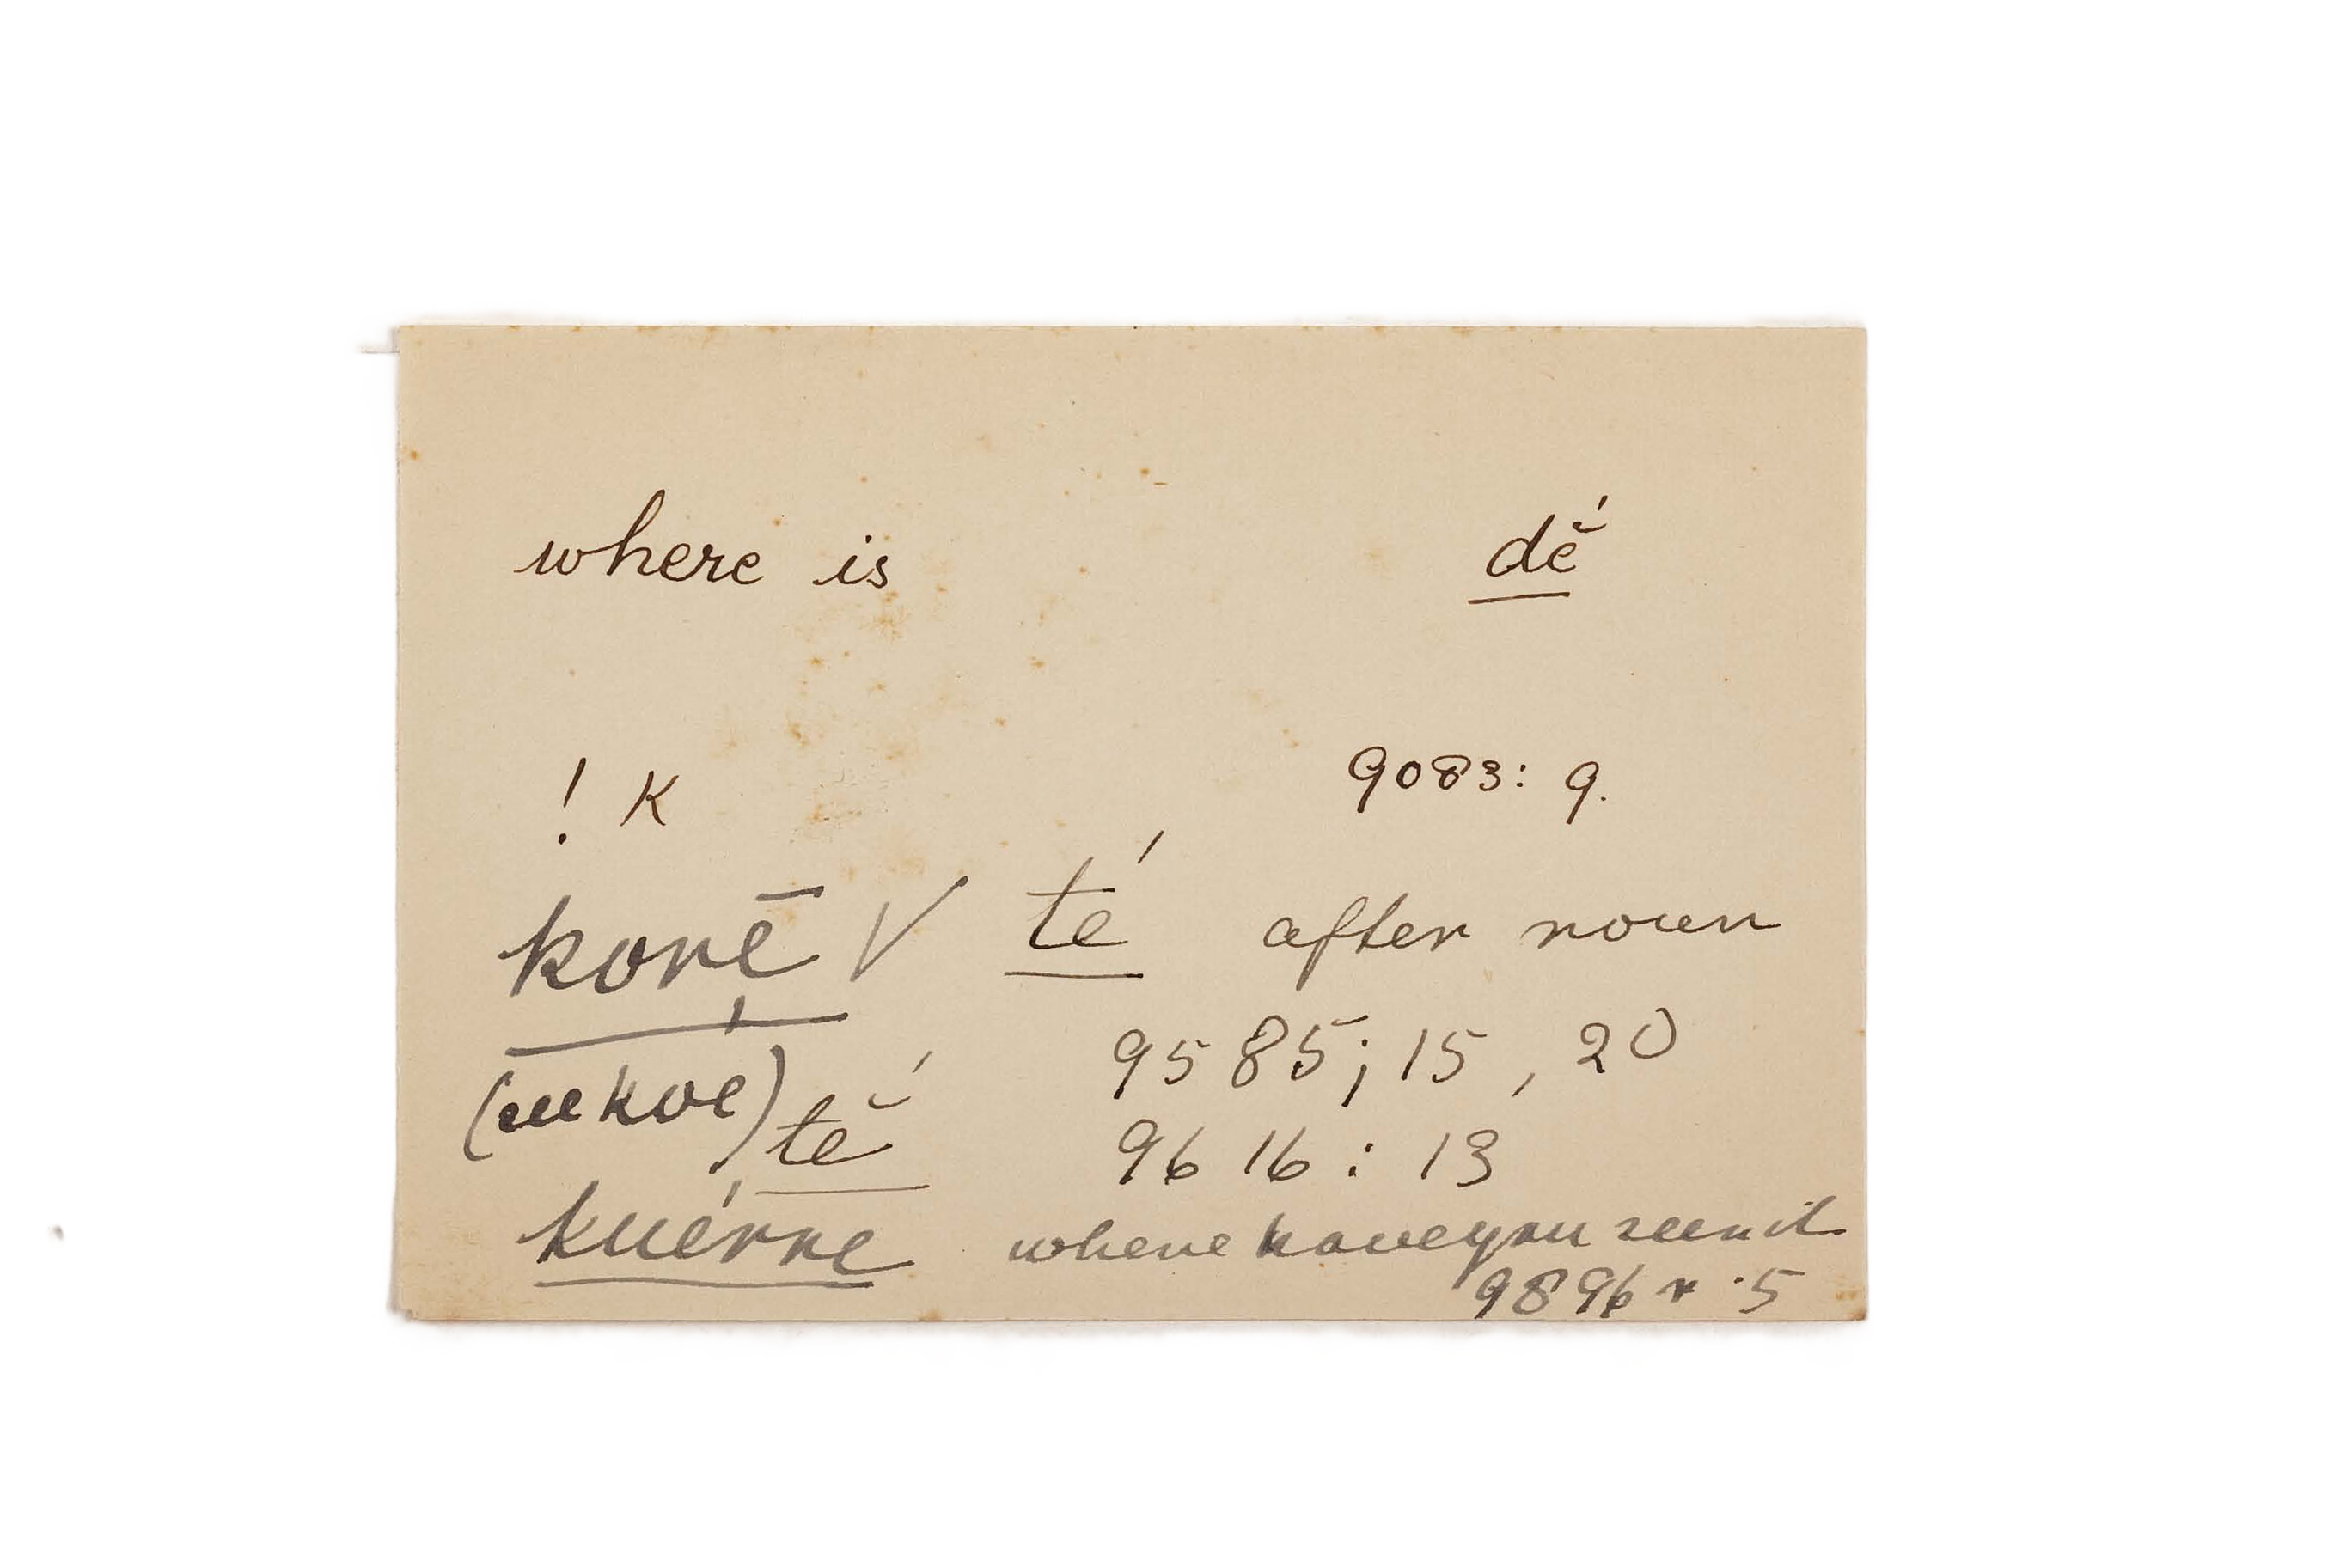 where is dĕ́
! K 9083: 9.
korē √ té after noun
9585; 15, 20
(see kóe) tĕ́ 9616: 13
kuérre where have you seen it
9896 r. 5